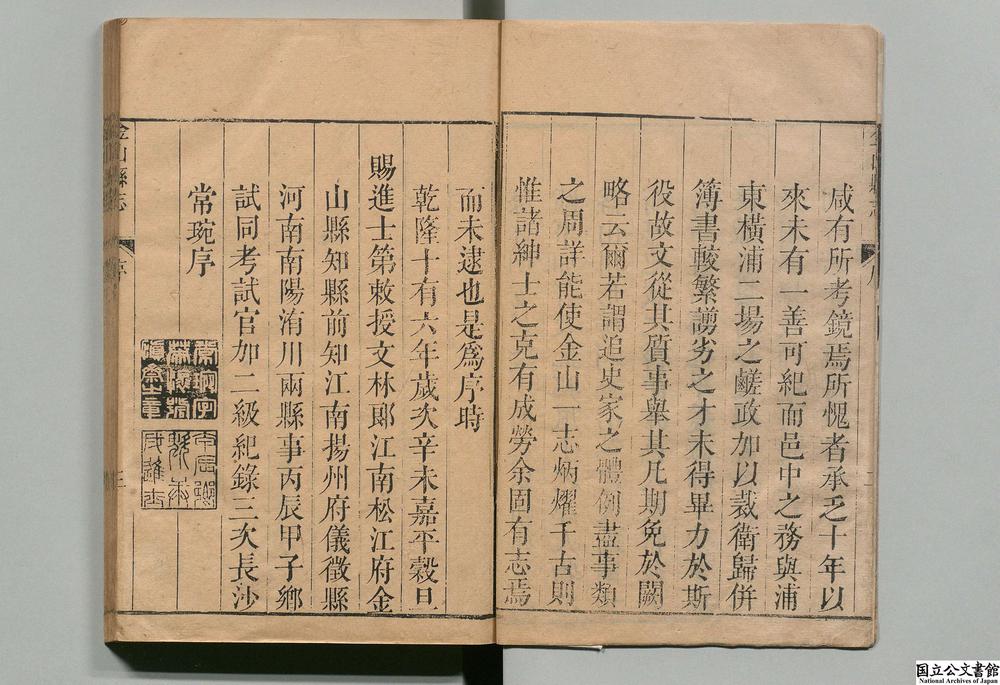 咸有所考鏡焉所愧者承乏十年以
來未有一善可紀而邑中之務與浦
東橫浦二場之鹾政加以裁衛歸併
簿書較繁謭劣之才未得畢力於斯
役故文從其質事舉其凡期免於闕
略云爾若謂追史家之體例盡事類
之周詳能使金山一志炳燿千古則
惟諸紳士之克有成勞余固有志焉
而未逮也是爲序時
乾隆十有六年歲次辛未嘉平穀旦
賜進士第敕授文林郎江南松江府金
山縣知縣前知江南揚州府儀徵縣
河南南陽淯川兩縣事丙辰甲子鄉
試同考試官加二級紀錄三次長沙
常琬序
金山縣志
序
三
国立公文書館
National Archives of Japan